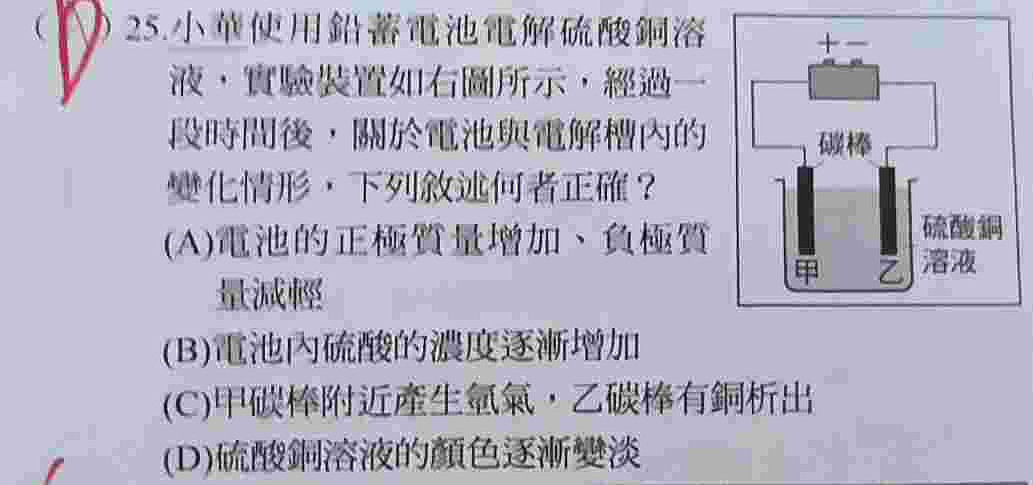 (D) 25.小華使用鉛蓄電池電解硫酸銅溶
液，實驗裝置如右圖所示，經過一
段時間後，關於電池與電解槽內的
變化情形，下列敘述何者正確？
(A)電池的正極質量增加、負極質
量減輕
(B)電池內硫酸的濃度逐漸增加
(C)甲碳棒附近產生氫氣，乙碳棒有銅析出
(D)硫酸銅溶液的顏色逐漸變淡
＋－
碳棒
硫酸銅
溶液
甲 乙